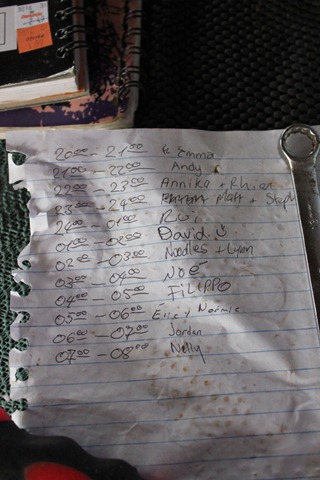 20⁰⁰ - 21⁰⁰ Emma
21⁰⁰ - 22⁰⁰ Andy
22⁰⁰ - 23⁰⁰ Annika + Rhian
23⁰⁰ - 24⁰⁰ Matt + Steph
24⁰⁰ - 01⁰⁰ Rui
01⁰⁰ - 02⁰⁰ David
02⁰⁰ - 03⁰⁰ Noodles + Lynn
03⁰⁰ - 04⁰⁰ Noé
04⁰⁰ - 05⁰⁰ FiLiPPO
05⁰⁰ - 06⁰⁰ y Noémie
06⁰⁰ - 07⁰⁰ Jordan
07⁰⁰ - 08⁰⁰ Nelly